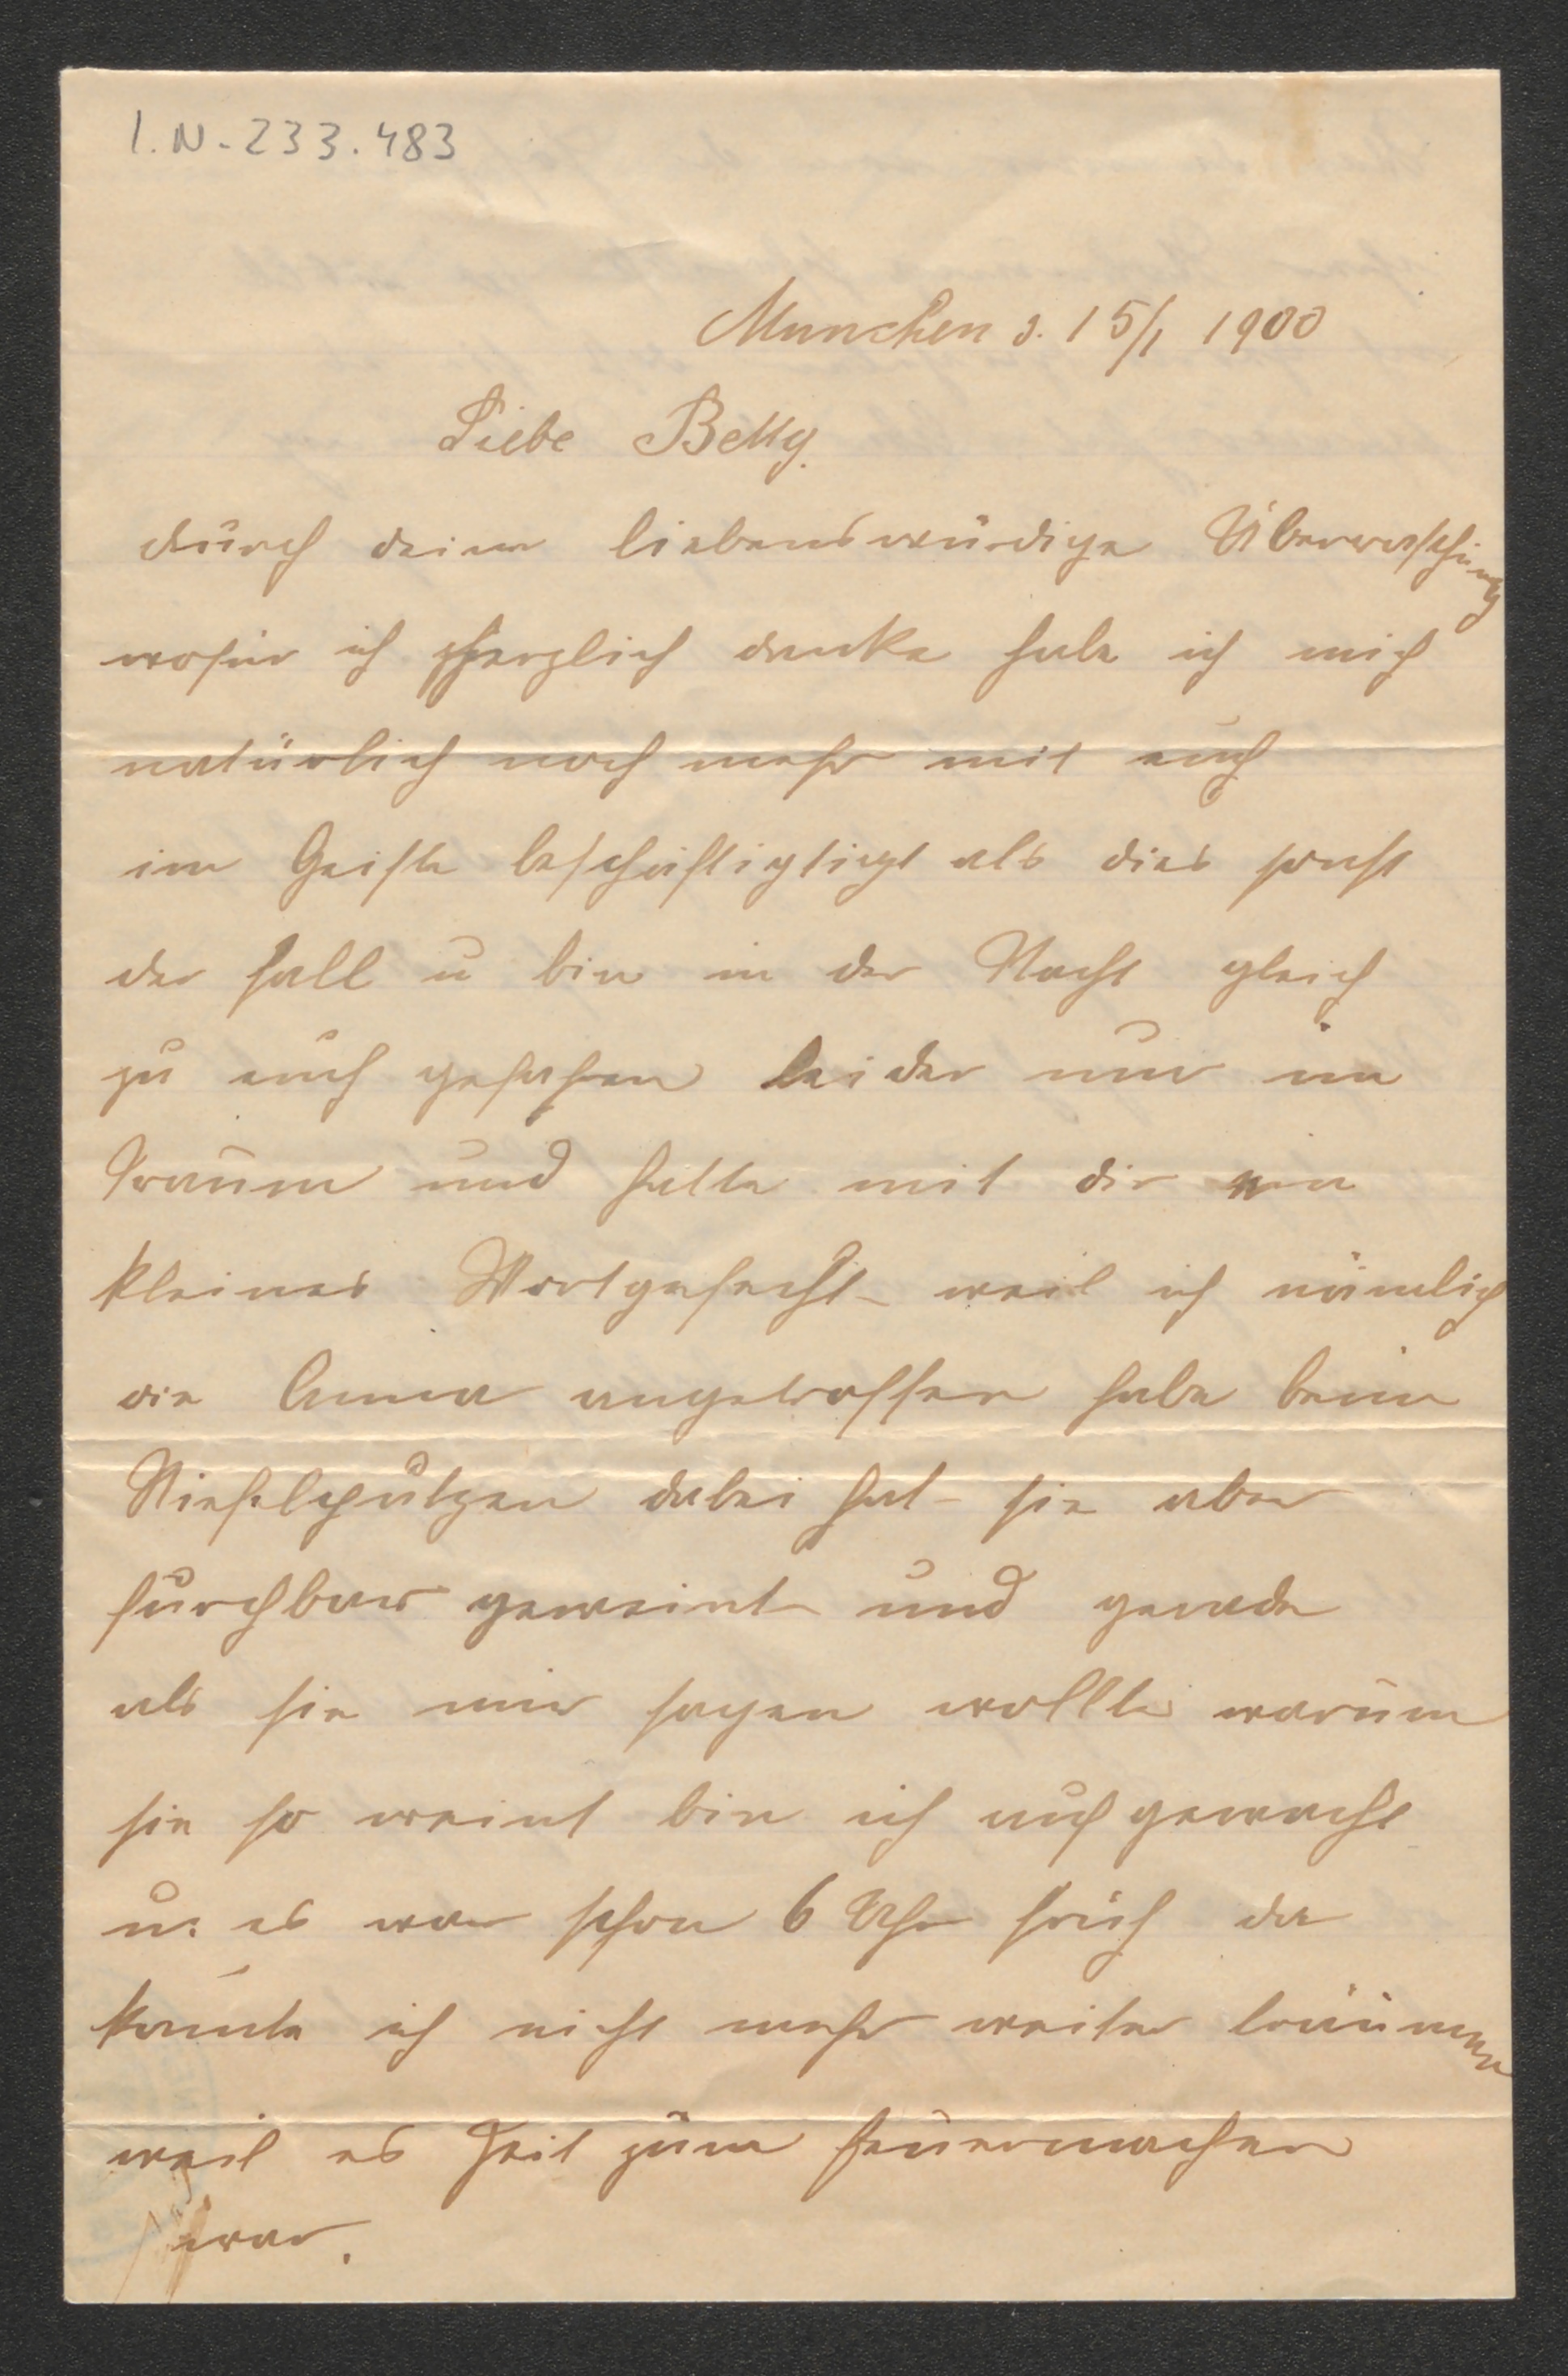 I.N. 233.483
Munchen d. 15/1 1900
Liebe Betty.
durch deine liebenswürdige Überraschung
wofür ich herzlich danke habe ich mich
natürlich noch mehr mit euch
im Geiste beschäftigtigt als dies sonst
der fall u bin in der Nacht gleich
zu euch gefahren leider nur im
Traum und hatte mit dir ein
kleines Wortgefecht weil ich nämlich
die Anna angetroffen habe beim
Stiefelputzen dabei hat sie aber
furchbar geweint und gerade
als sie mir sagen wollte warum
sie so weint bin ich aufgewacht
u. es war schon 6 Uhr früh da
konnte ich nicht mehr weiter träumen
weil es Zeit zum feuermachen
war.